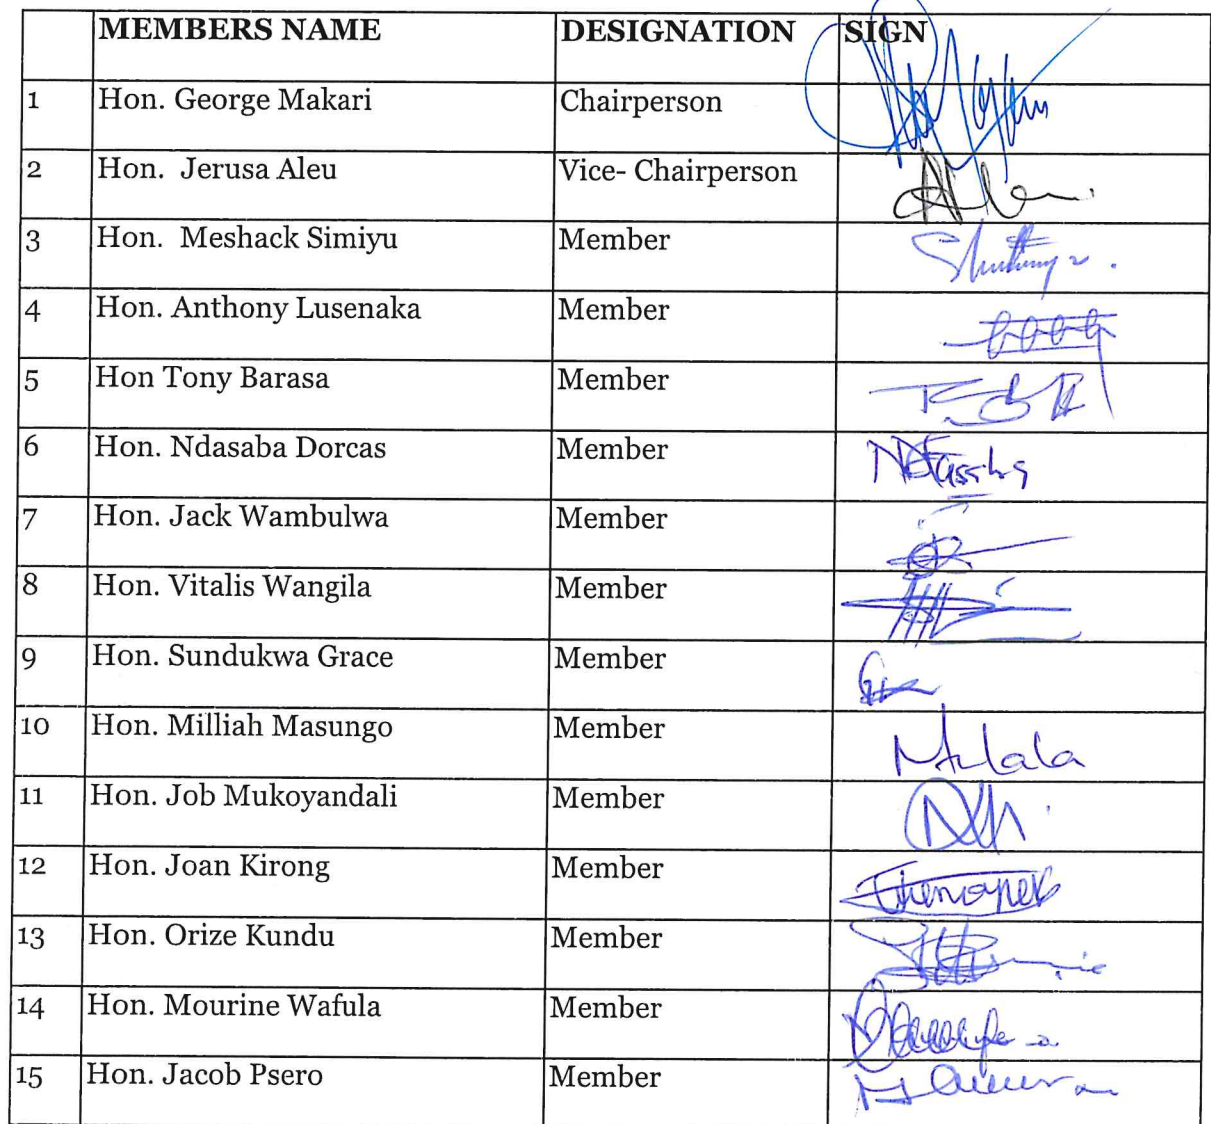 MEMBERS NAME DESIGNATION SIGN
1 Hon. George Makari Chairperson
2 Hon. Jerusa Aleu Vice- Chairperson
3 Hon. Meshack Simiyu Member
4 Hon. Anthony Lusenaka Member
5 Hon Tony Barasa Member
6 Hon. Ndasaba Dorcas Member
7 Hon. Jack Wambulwa Member
8 Hon. Vitalis Wangila Member
9 Hon. Sundukwa Grace Member
10 Hon. Milliah Masungo Member
11 Hon. Job Mukoyandali Member
12 Hon. Joan Kirong Member
13 Hon. Orize Kundu Member
14 Hon. Mourine Wafula Member
15 Hon. Jacob Psero Member